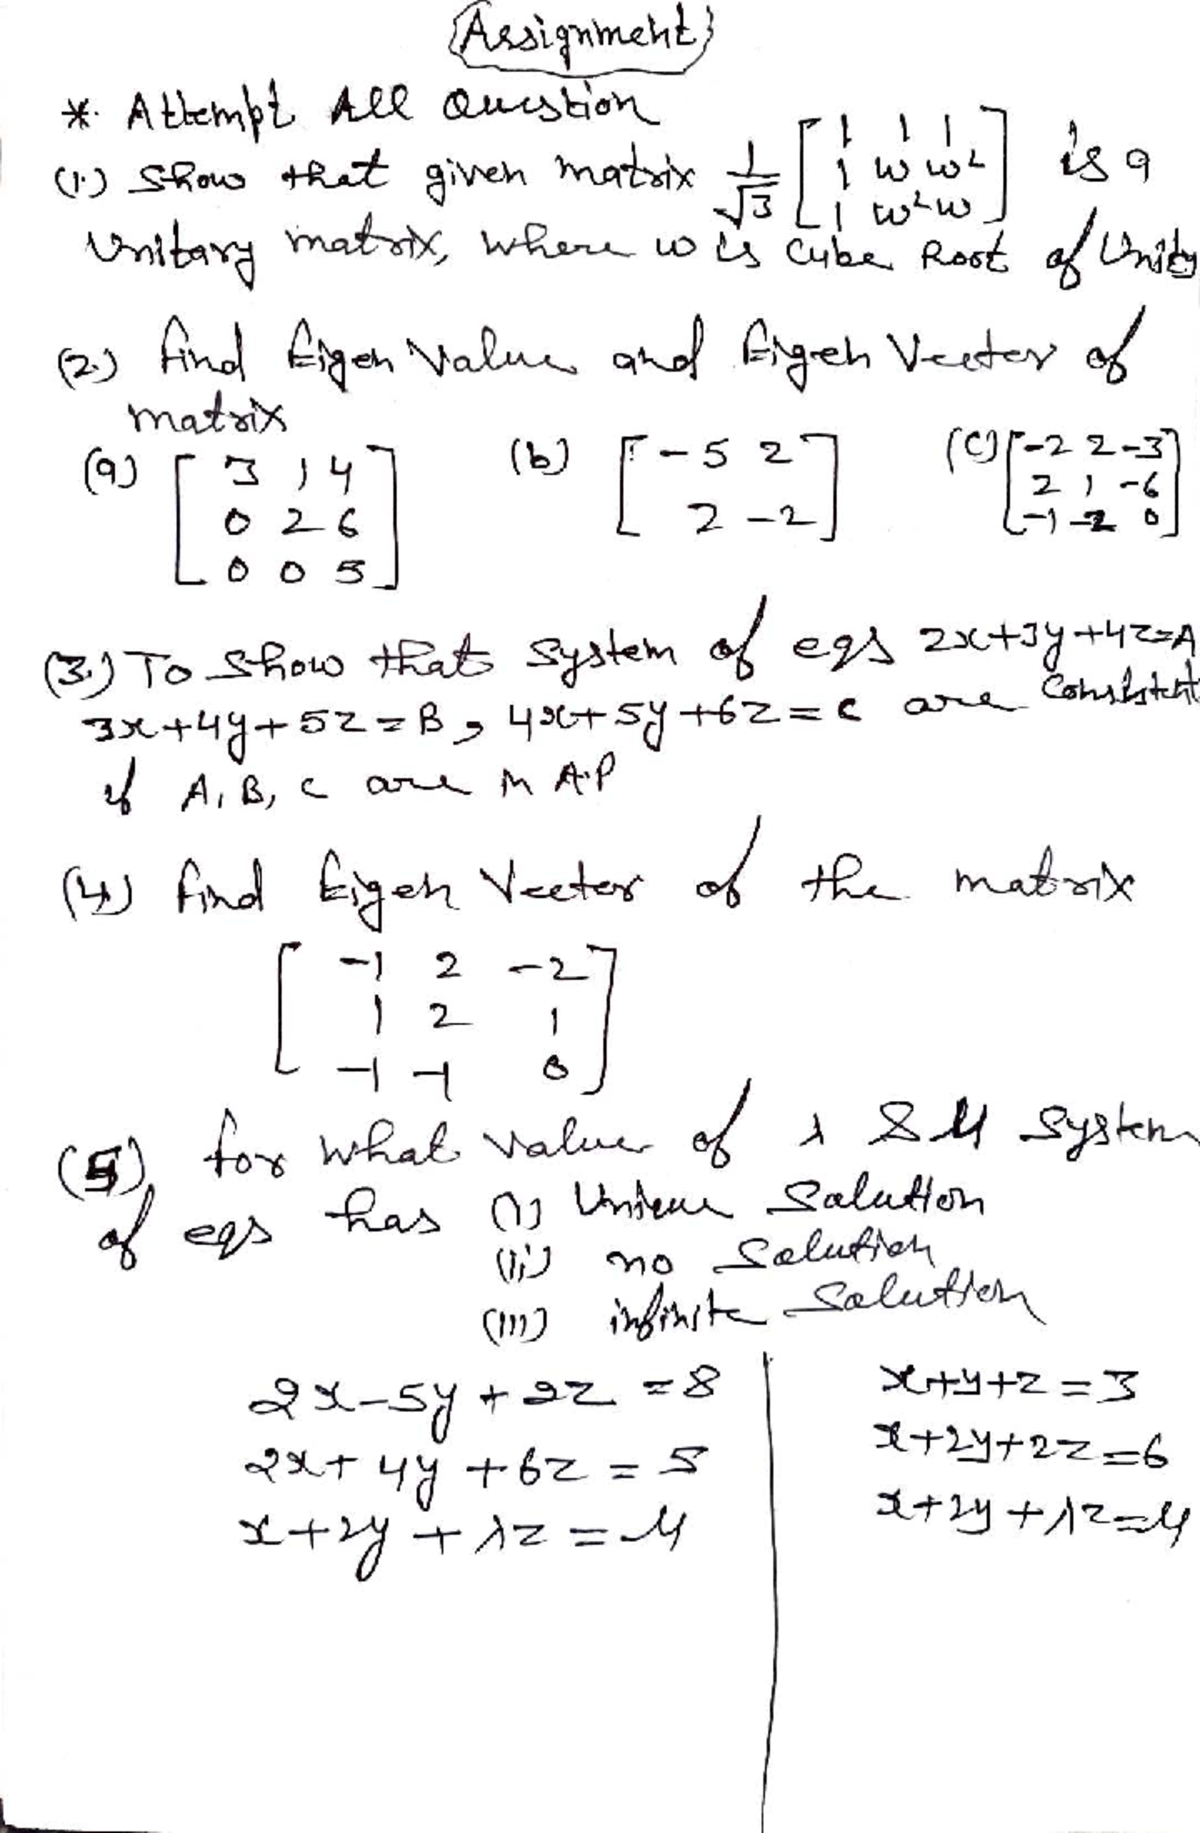 Assignment
*. Attempt All Question
(1.) Show that given matrix 1/√3 [1 1 1; 1 w w²; 1 w² w] is a
Unitary matrix, where w is Cube Root of Unity
(2.) find Eigen Value and Eigen Vector of
matrix
(a) [3 1 4; 0 2 6; 0 0 5] (b) [-5 2; 2 -2] (c) [-2 2 -3; 2 1 -6; -1 -2 0]
(3.) To Show that System of eqs 2x+3y+4z=A
3x+4y+5z=B, 4x+5y+6z=C are Consistent
if A, B, C are in A.P
(4) find Eigen Vector of the matrix
[-1 2 -2; 1 2 1; -1 -1 0]
(5) for what value of λ & μ System
of eqs has (i) Unique Solution
(ii) no Solution
(iii) infinite Solution
2x-5y+2z=8
2x+4y+6z=5
x+2y+λz=μ
x+y+z=3
x+2y+2z=6
x+2y+λz=μ